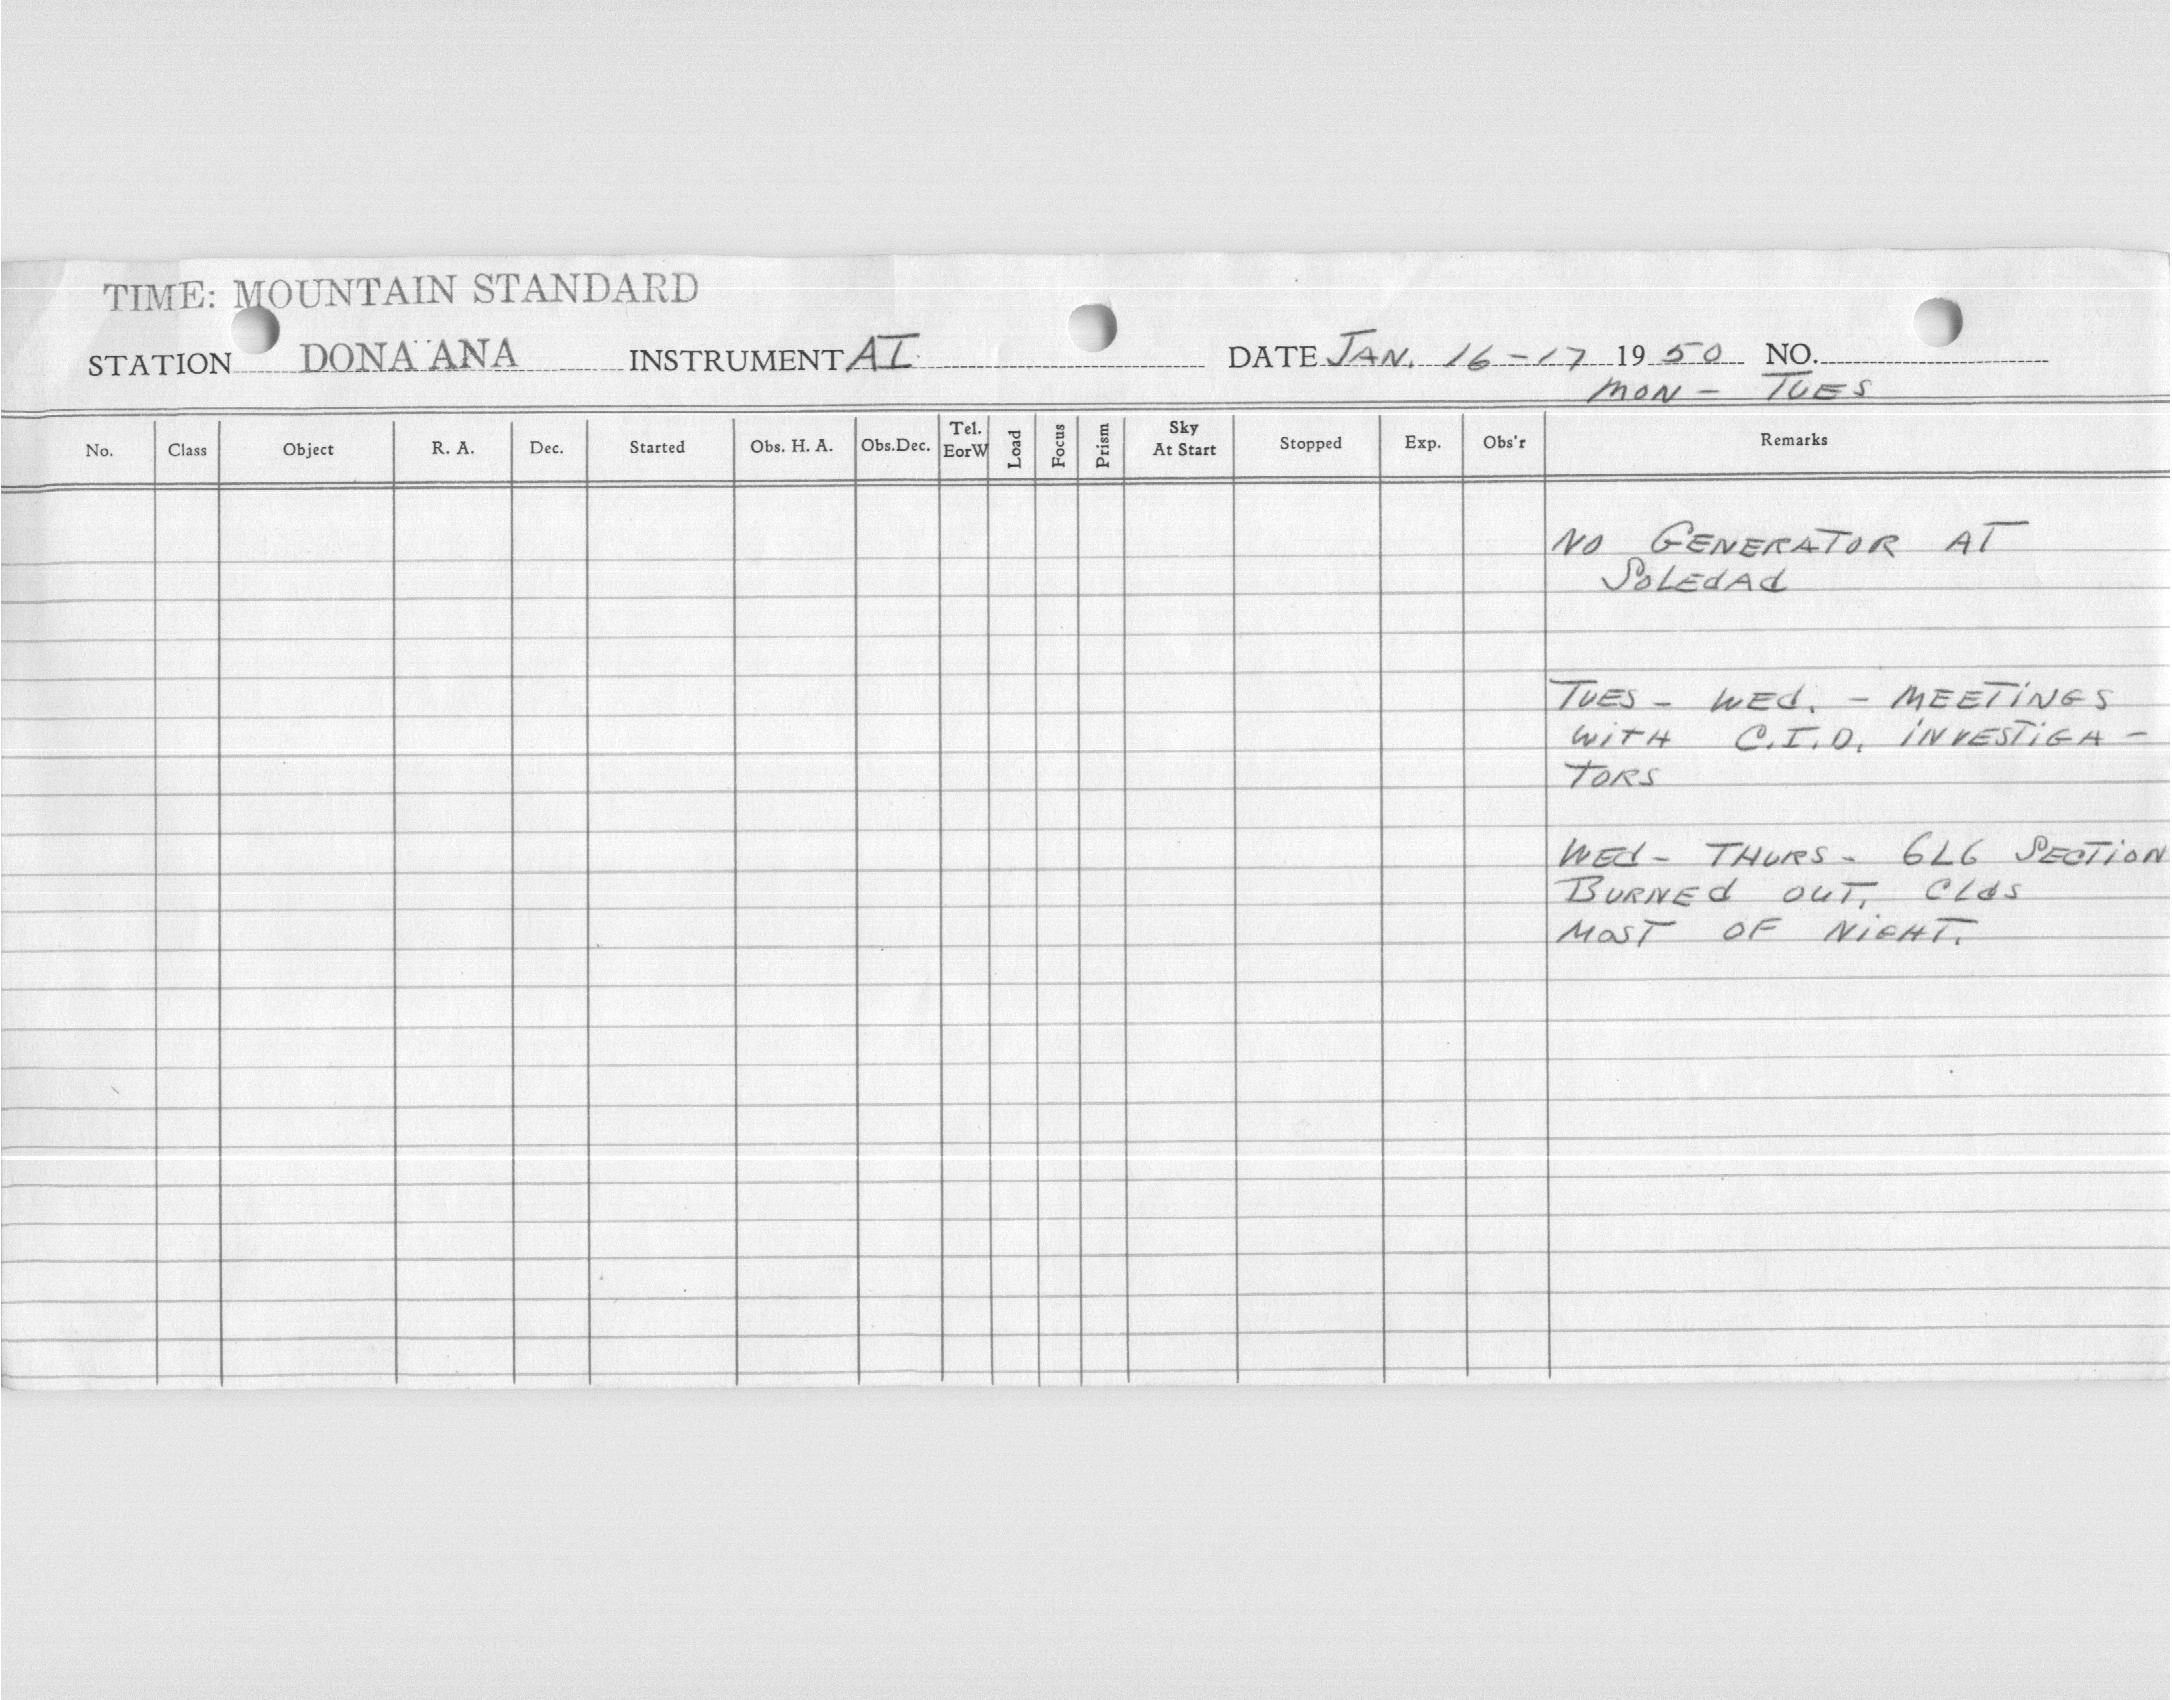 TIME: MOUNTAIN STANDARD
STATION DONA ANA INSTRUMENT AI DATE JAN. 16-17 1950 NO.
MON - TUES
No. Class Object R. A. Dec. Started Obs. H. A. Obs.Dec. Tel. EorW Load Focus Prism Sky At Start Stopped Exp. Obs'r Remarks
NO GENERATOR AT
SOLEdAd
TUES - WEd. - MEETiNGS
WiTH C.I.D. iNVESTiGA-
TORS
WEd - THURS - 6L6 SECTiON
BURNEd OUT. CLdS
MOST OF NiGHT.